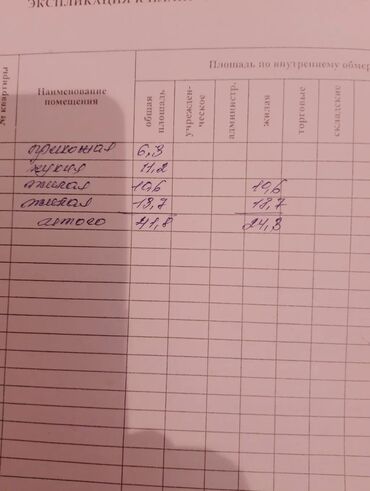 ЭКСПЛИКАЦИЯ К
Площадь по внутреннему обмер
№ квартиры
Наименование помещения
общая площадь
учрежден- ческое
администр.
жилая
торговые
складские
прихожая 6,3
кухня 11,2
жилая 10,6 10,6
жилая 13,7 13,7
итого 41,8 24,3